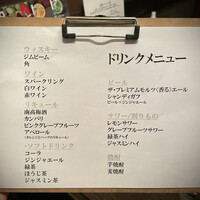 ドリンクメニュー
ウィスキー
ジムビーム
角
ワイン
スパークリング
白ワイン
赤ワイン
リキュール
南高梅酒
カンパリ
ピンクグレープフルーツ
アペロール
(オレンジとハーブのリキュール)
ソフトドリンク
コーラ
ジンジャエール
緑茶
ほうじ茶
ジャスミン茶
ビール
ザ・プレミアムモルツ〈香る〉エール
シャンディガフ
ビール×ジンジャエール
サワー/割りもの
レモンサワー
グレープフルーツサワー
緑茶ハイ
ジャスミンハイ
焼酎
芋焼酎
麦焼酎